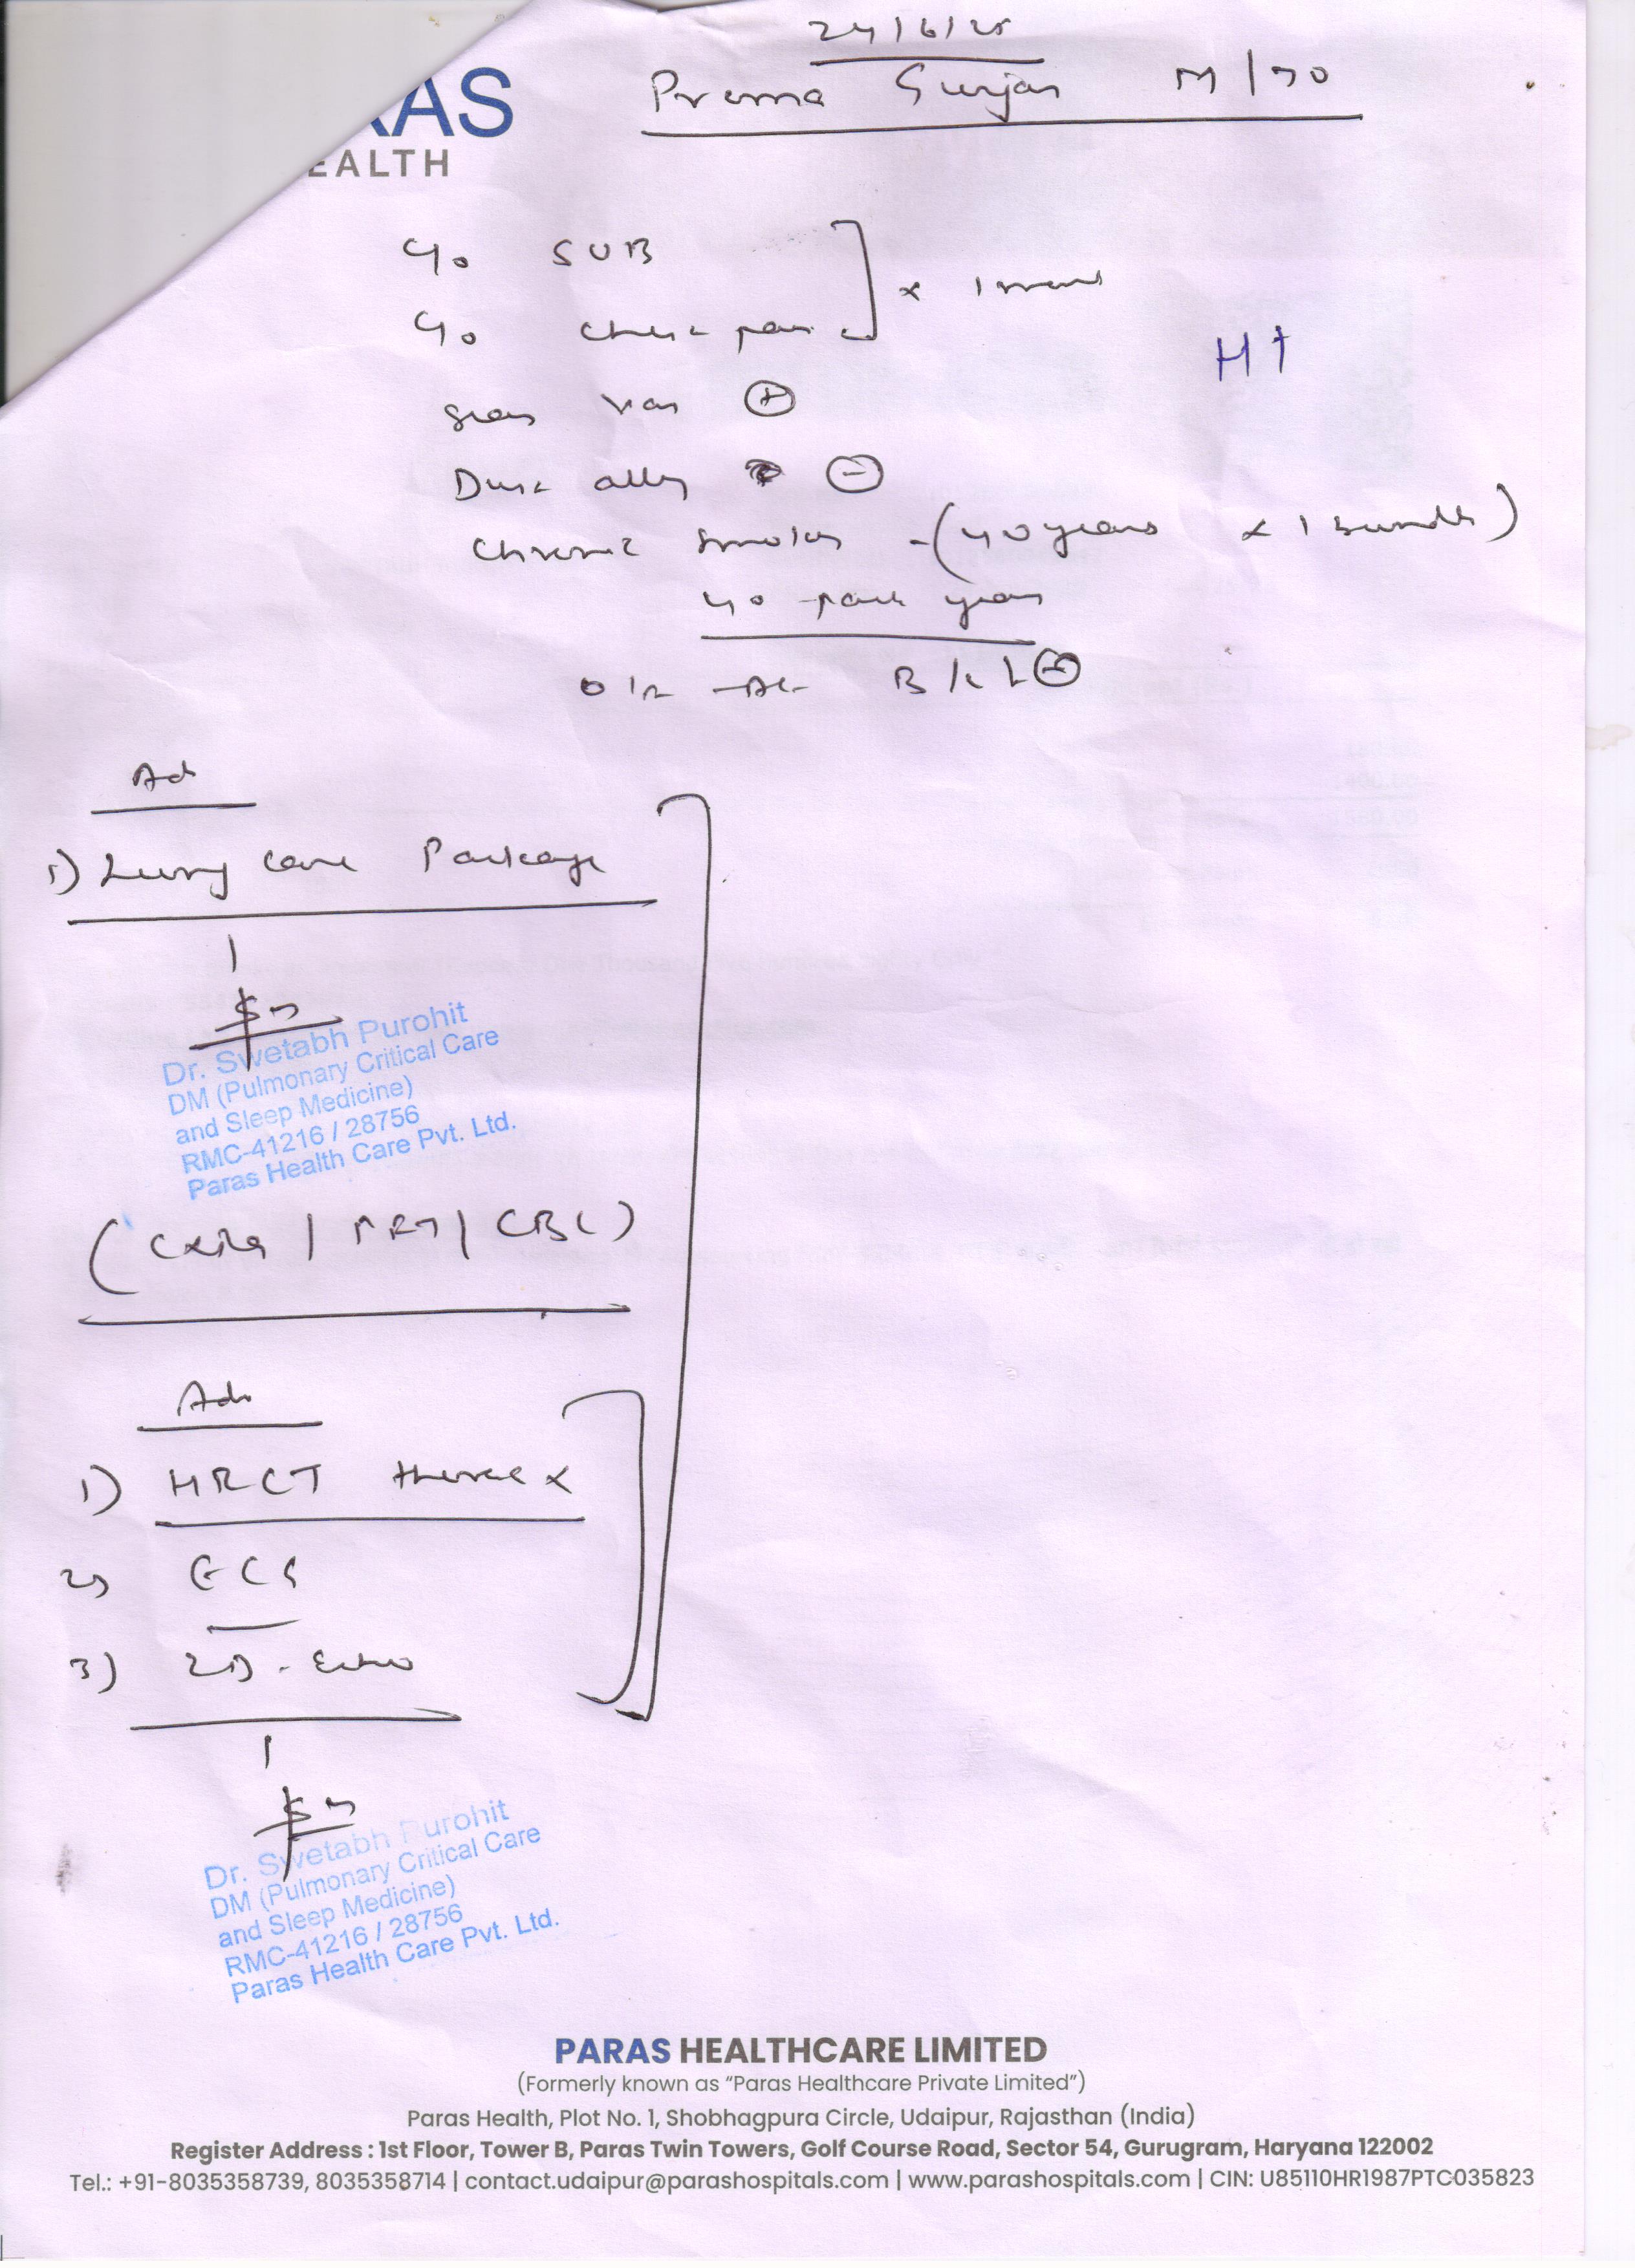 24/6/25
Prema Gurjar M/70
RAS
EALTH
c/o SOB
c/o chest pain ] x 1 month
H↑
(+)
Dust allergy (-)
Chronic smoker - (40 years x 1 bundle)
40 pack years
B/L (+)
Adv
1) Lung care Package
Dr. Swetabh Purohit
DM (Pulmonary Critical Care
and Sleep Medicine)
RMC-41216 / 28756
Paras Health Care Pvt. Ltd.
(CXR / PFT / CBC)
Adv
1) HRCT thorax
2) ECG
3) 2D-Echo
Dr. Swetabh Purohit
DM (Pulmonary Critical Care
and Sleep Medicine)
RMC-41216 / 28756
Paras Health Care Pvt. Ltd.
PARAS HEALTHCARE LIMITED
(Formerly known as “Paras Healthcare Private Limited”)
Paras Health, Plot No. 1, Shobhagpura Circle, Udaipur, Rajasthan (India)
Register Address : 1st Floor, Tower B, Paras Twin Towers, Golf Course Road, Sector 54, Gurugram, Haryana 122002
Tel.: +91-8035358739, 8035358714 | contact.udaipur@parashospitals.com | www.parashospitals.com | CIN: U85110HR1987PTC035823